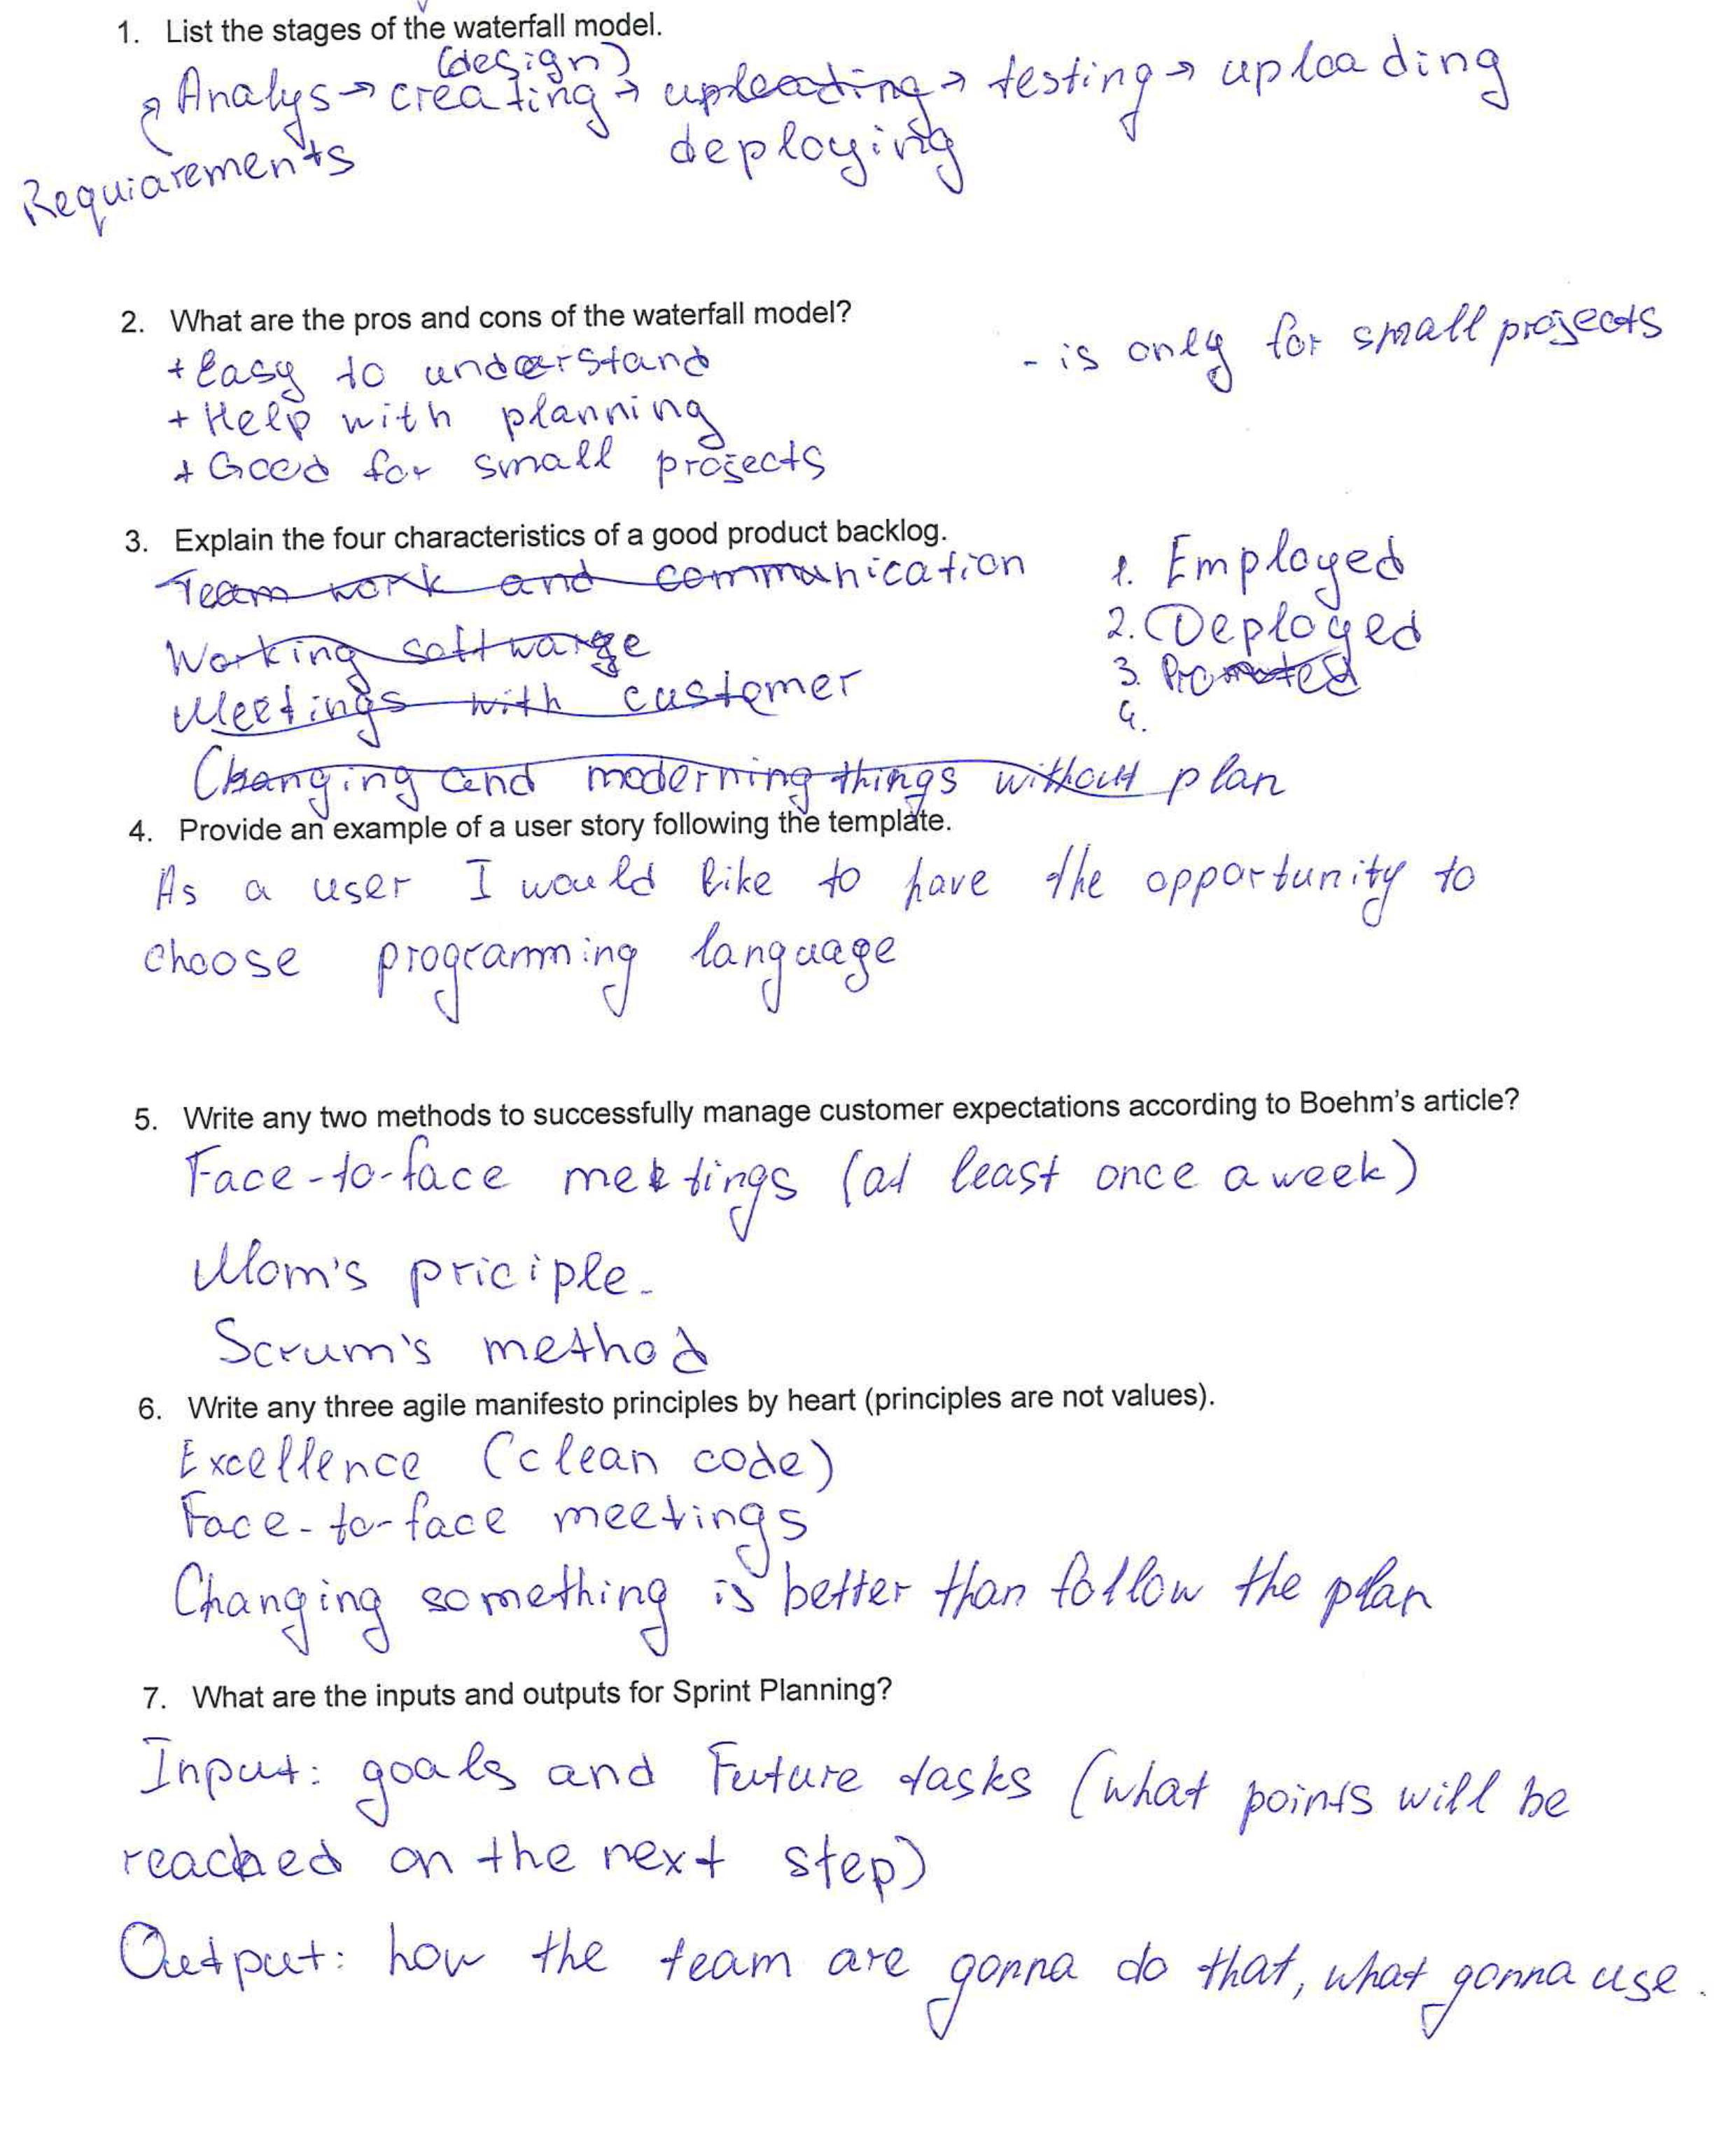 1. List the stages of the waterfall model.
(design)
Analys → creating → uploading → testing → uploading
deploying
Requiarements
2. What are the pros and cons of the waterfall model?
- is only for small projects
+ Easy to understand
+ Help with planning
+ Good for small projects
3. Explain the four characteristics of a good product backlog.
Team work and communication
1. Employed
Working software
2. Deployed
Meetings with customer
3. Promoted
4.
Changing and moderning things without plan
4. Provide an example of a user story following the template.
As a user I would like to have the opportunity to
choose programming language
5. Write any two methods to successfully manage customer expectations according to Boehm's article?
Face-to-face meetings (at least once a week)
Mom's priciple.
Scrum's method
6. Write any three agile manifesto principles by heart (principles are not values).
Excellence (clean code)
Face-to-face meetings
Changing something is better than follow the plan
7. What are the inputs and outputs for Sprint Planning?
Input: goals and Future tasks (what points will be
reached on the next step)
Output: how the team are gonna do that, what gonna use.